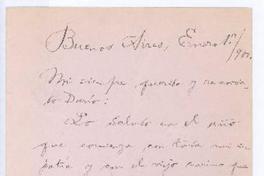 Buenos Aires, Enero 1º/901.
Mi siempre querido y recorda-
do Darío:
Lo saludo en el año
que comienza con toda mi sim-
patía y con el viejo cariño que